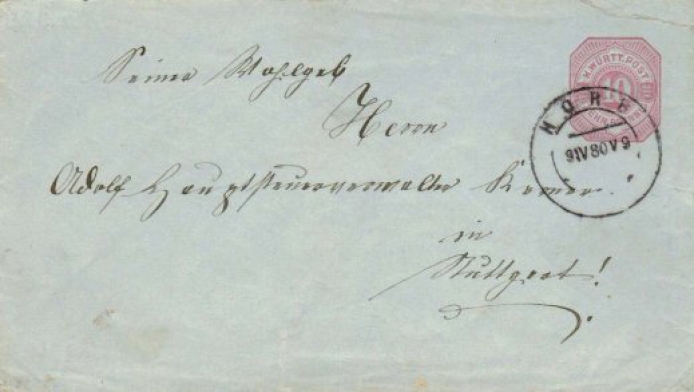 Seiner Wohlgeb
Herrn
Adolf Hauptsteuerverwalter Kemer.
in
Stuttgart!
K. WÜRTT. POST
10
HORB
9 IV 80 V 9